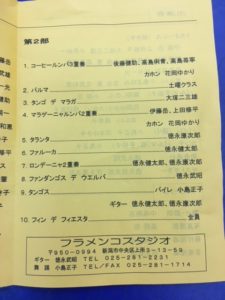 第2部
1. コーヒールンバ3重奏 後藤健助、高島俐青、高島善事
カホン 花岡ゆかり
2. パルマ 土曜クラス
3. タンゴ デ マラガ 大塚二三雄
4. マラゲーニャルンバ2重奏 伊藤岳、上田修平
カホン 花岡ゆかり
5. タランタ 徳永康次郎
6. ファルーカ 徳永健太郎
7. ロンデーニャ2重奏 徳永健太郎、徳永康次郎
8. ファンダンゴス デ ウエルバ 徳永武昭
9. タンゴス バイレ 小島正子
ギター 徳永健太郎、徳永康次郎
10. フィン デ フィエスタ 全員
フラメンコスタジオ
〒950-0994 新潟市中央区上所3-13-59
ギター 徳永武昭 TEL 025-281-2231
舞踊 小島正子 TEL/FAX 025-281-1714